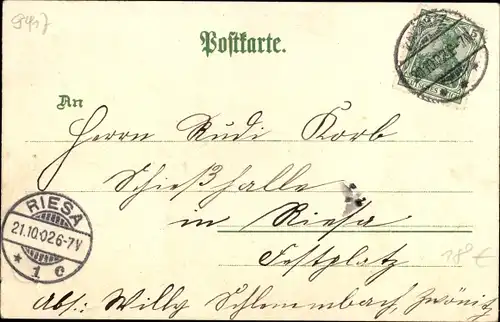 9417
Postkarte.
An
Herrn Rudi Korb
Schießhalle
in Riesa
Festplatz
18€
RIESA
21.10.02 6-7V
* 1 c
Abs.: Willy Schlemmbach, Zwönitz